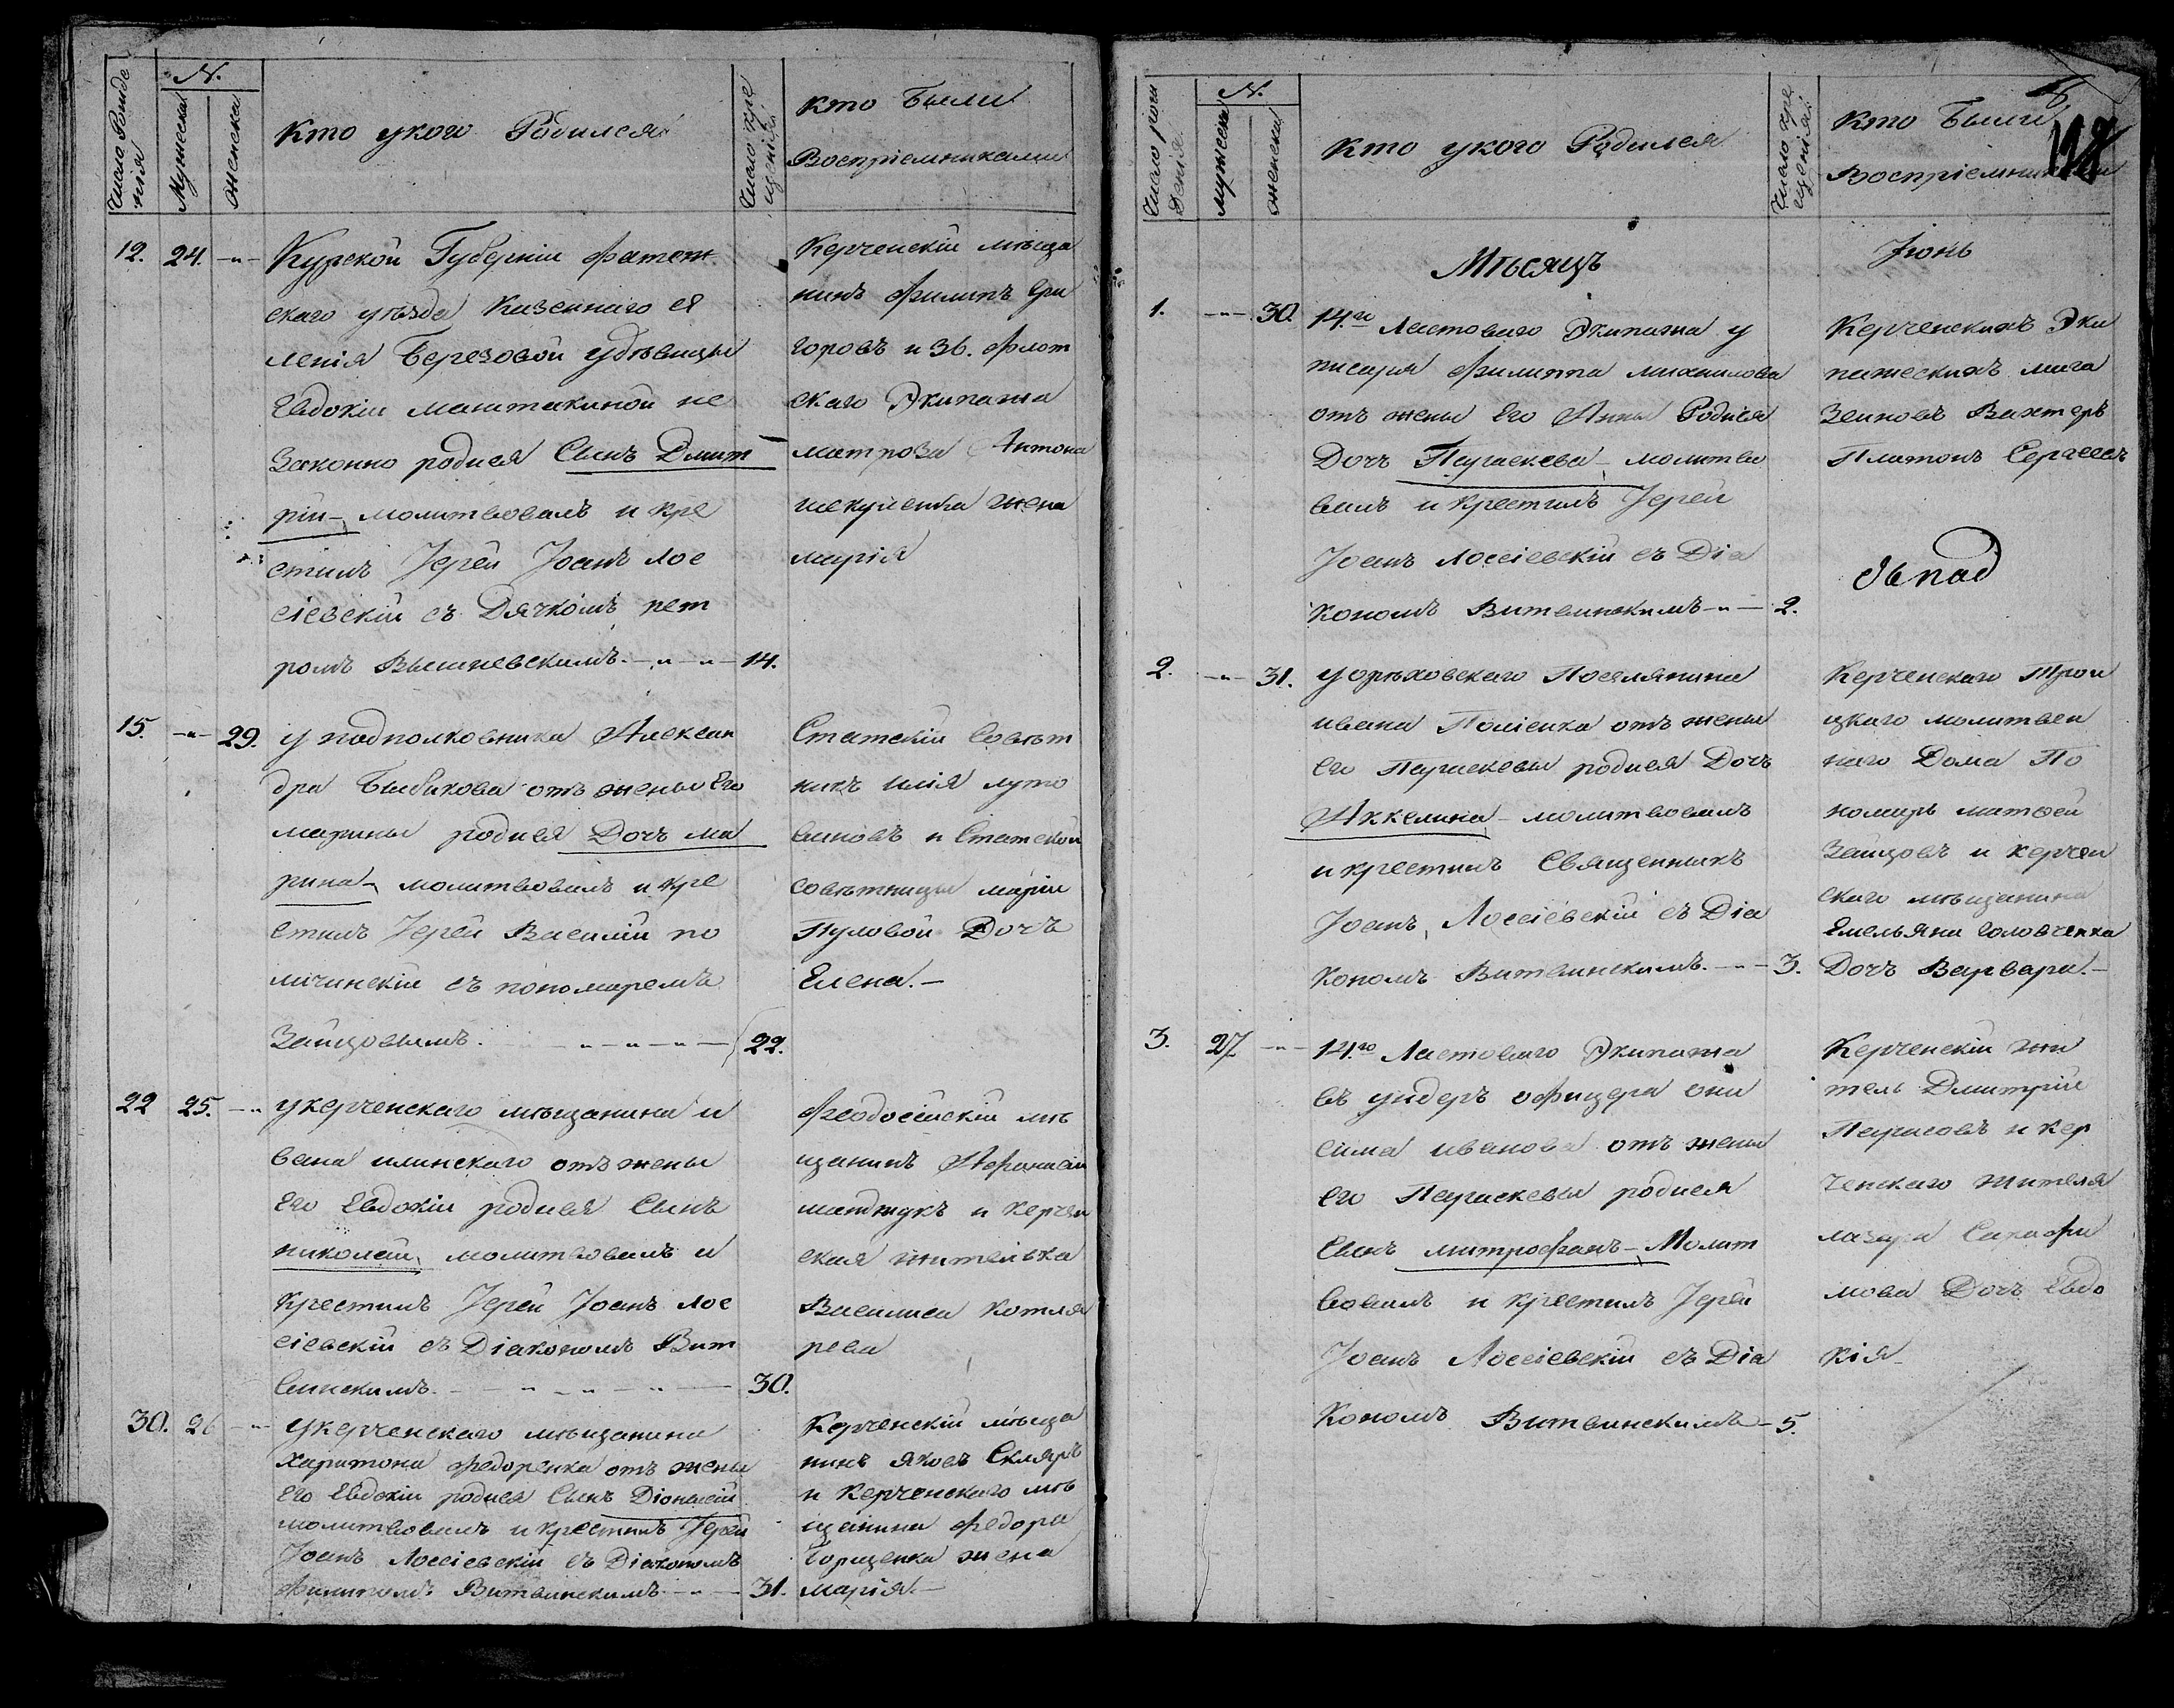 Число Рожде
нія
N.
Мужеска
женска
Кто укого Родился
Число кре
щенія
кто Были
Воспріемниками
12. 24. -„- Курской Губерніи Фатеж
скаго уѣзда Казеннаго се
ленія Березовой удѣвицы
Евдокіи маштакиной не
законно родился Сынъ Дмит
рій молитвовалъ и кре
стилъ Іерей Іоанъ Лос
сіевскій съ Дячкомъ пет
ромъ Вышневскимъ. -„-„- 14.
Керченскій мѣща
нинъ Филипъ Гри
горовъ и 36. Флот
скаго Экипажа
матроза Антона
жена
марія
15. -„- 29. у подполковника Алексан
дра Быбикова отъ жены Его
марины родися Дочь ма
рина молитвовалъ и кре
стилъ Іерей Василій по
личинскій съ пономаремъ
Зайцовымъ. -„-„-„- 22.
Статскій Совѣт
никъ илія луто
виновъ и Статской
совѣтницы маріи
Пуловой Дочь
Елена.-
22 25. -„ укерченскаго мѣщанина и
вана илинскаго отъ жены
Его Евдокіи родися Сынъ
николай, молитвовалъ и
крестилъ Іерей Іоанъ Лос
сіевскій съ Діакономъ Вит
винскимъ. -„-„-„- 30.
Феодосійскій мѣ
щанинъ Афанасій
манджукъ и керчен
ская жителька
Василиса Котля
рева
30. 26 -„- укерченскаго мѣщанина
Харитона Федоренка отъ жены
Его Евдокіи родися Сынъ Діонисій
молитвовалъ и крестилъ Іерей
Іоанъ Лоссіевскій съ Діакономъ
Филипомъ Витвинскимъ -„- 31.
Керченскій мѣща
нинъ Яковъ Скляръ
и Керченскаго мѣ
щанина Федора
Борщенка жена
марія.-
Число рож
денія
N.
мужеска
женска
Кто укого Родился
Число кре
щенія
Кто Были
Воспріемниками
118
Мѣсяцъ
Іюнь
1. -„- 30. 14.го Ластоваго Экипажа у
писаря Филиппа михайлова
отъ жены Его Анны Родися
Дочь Параскева молитво
валъ и крестилъ Іерей
Іоанъ Лоссіевскій съ Діа
кономъ Витвинскимъ -„- 2.
Керченскихъ Эки
пажескихъ мага
зеиновъ Вахтеръ
Платонъ Сергеевъ
2. -„- 31. у орѣховскаго Поселянина
ивана Поліенка отъ жены
Его Параскевы родися Дочь
Аккелина молитвовалъ
и крестилъ Священникъ
Іоанъ Лоссіевскій съ Діа
кономъ Витвинскимъ. -„- 3.
Керченскаго Трои
цкаго молитвен
наго Дома По
номарь матвей
Зайцовъ и керчен
скаго мѣщанина
Емельяна Головченка
Дочь Варвара.-
3. 27 -„- 14.го Ластоваго Экипажа
въ ундеръ офицера они
сима иванова отъ жены
Его Параскевы родися
Сынъ митрофанъ Молит
вовалъ и крестилъ Іерей
Іоанъ Лоссіевскій съ Діа
кономъ Витвинскимъ - 5.
Керченскій жи
тель Дмитрій
Парасовъ и кер
ченскаго жителя
лазаря Сахафи
мова Дочь Евдо
кія